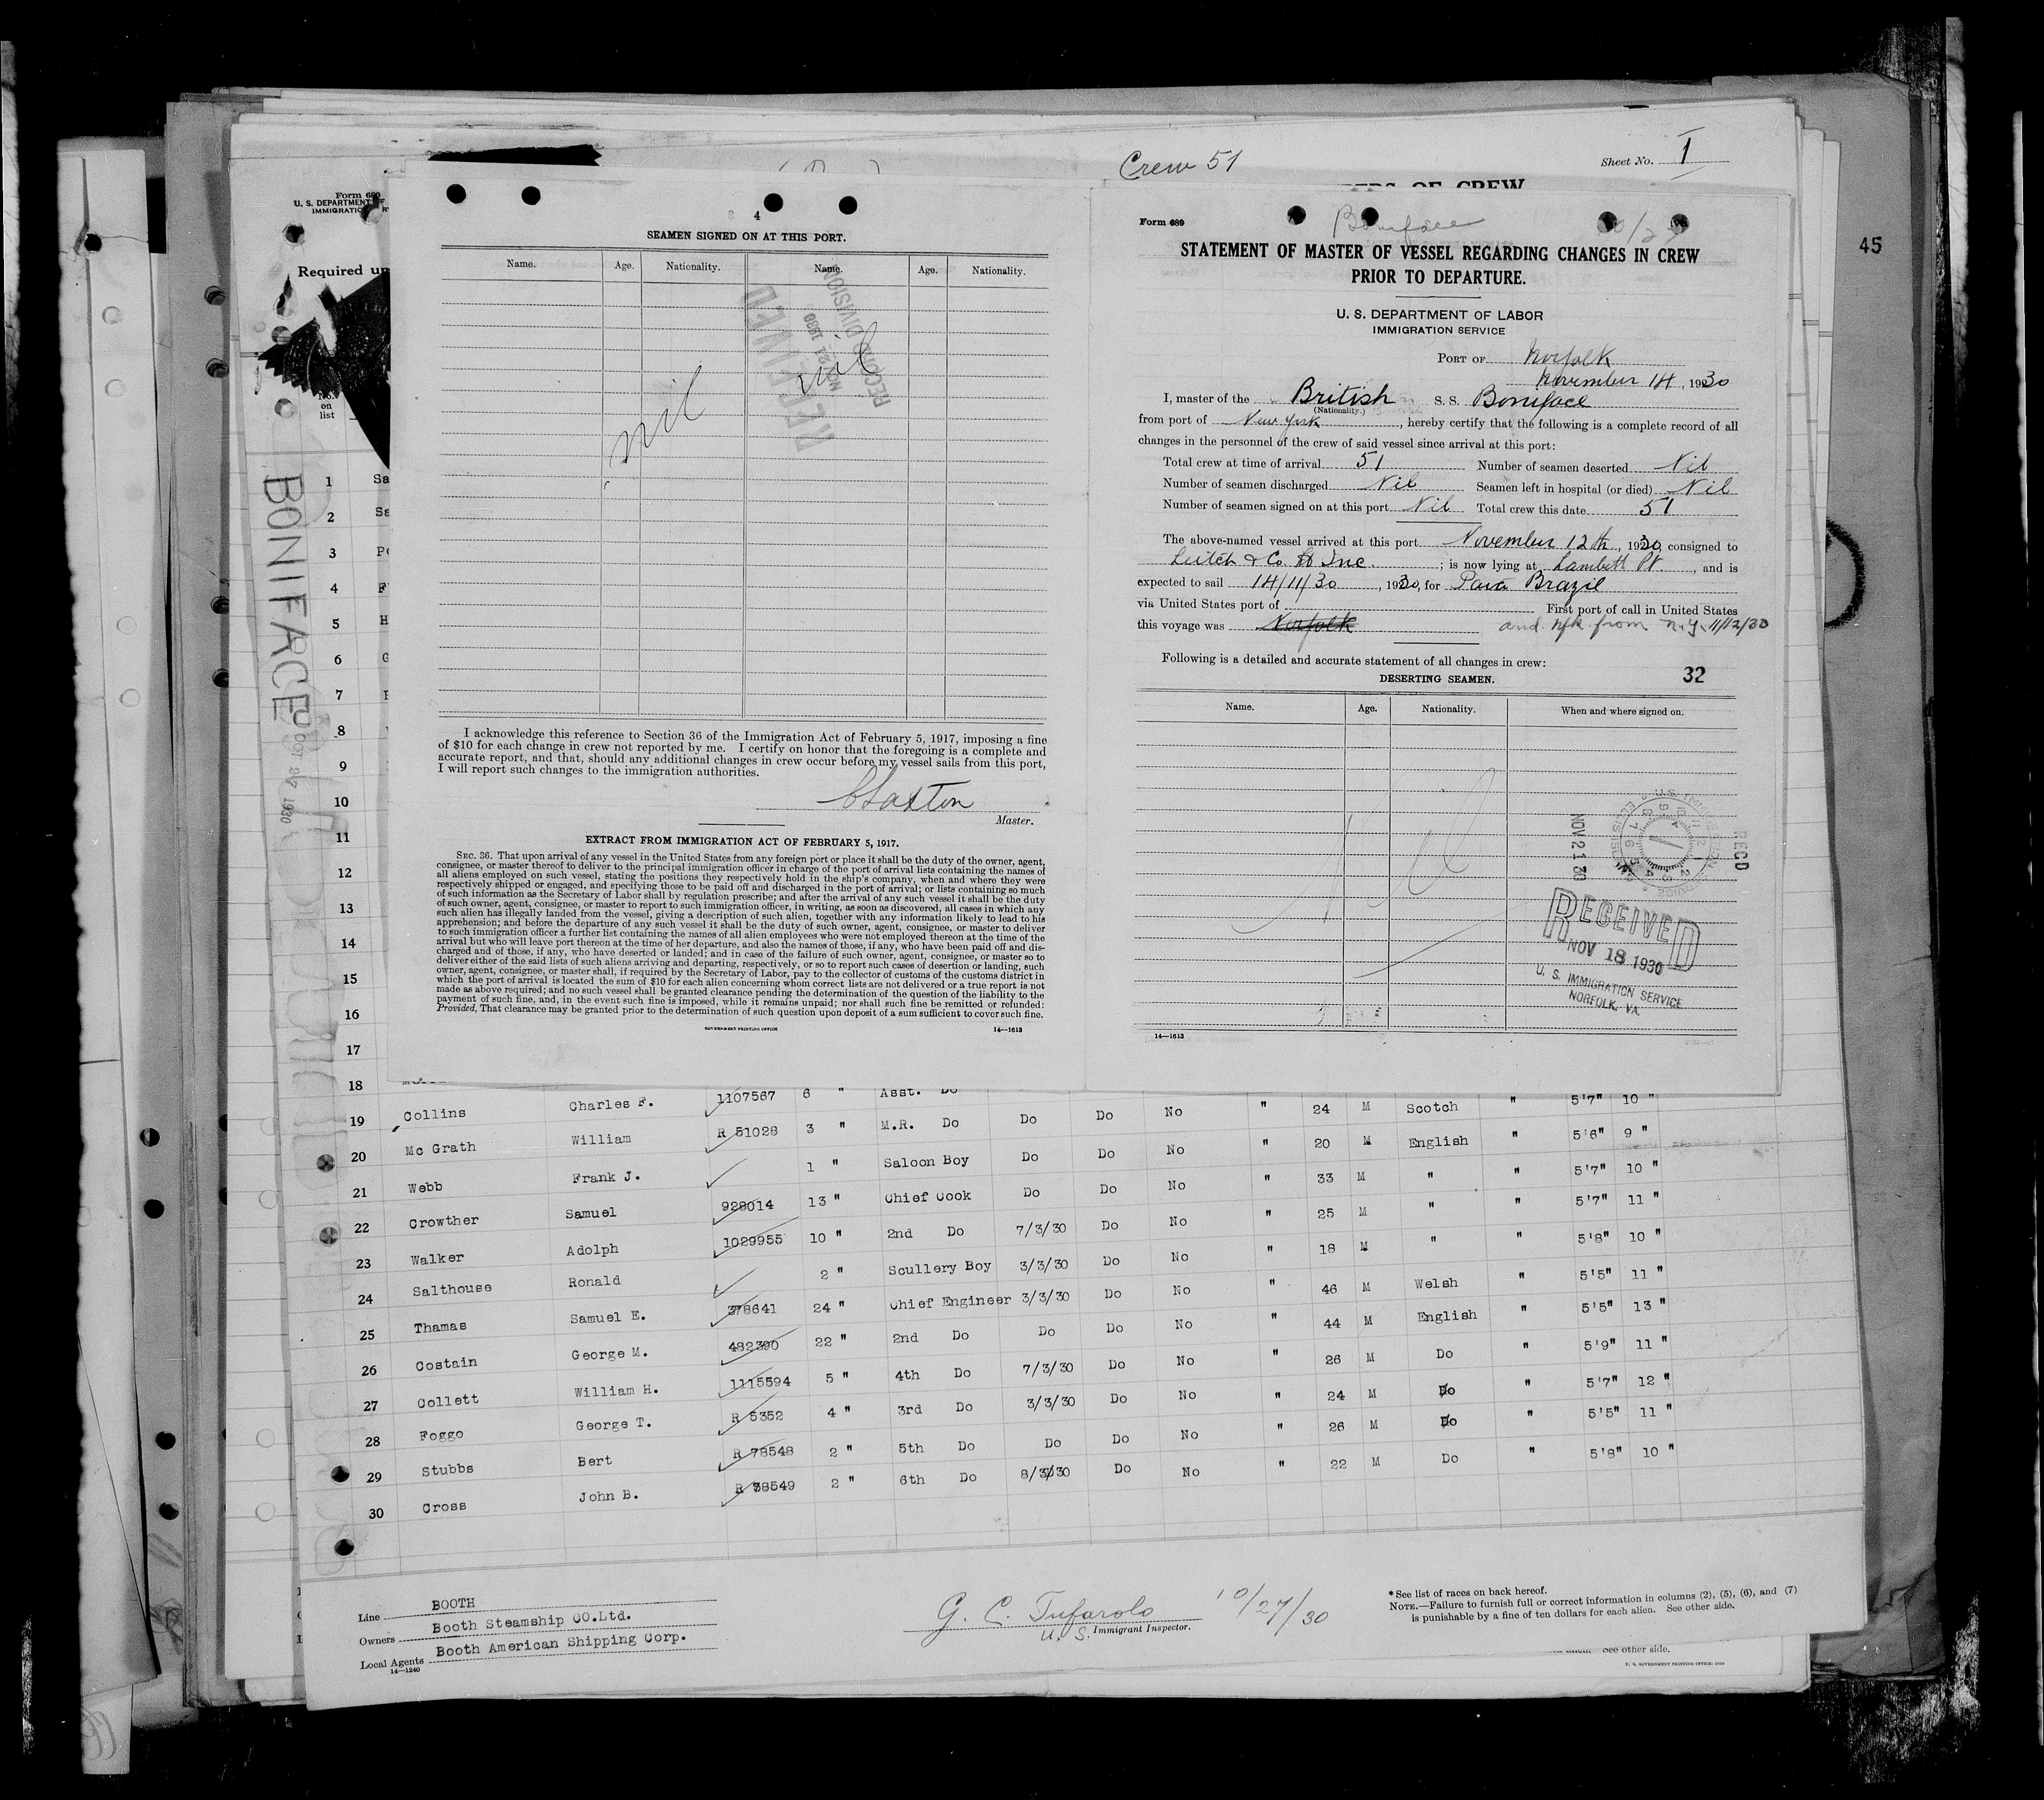 Crew 51
Sheet No. I
45
Form 689
U. S. DEPARTMENT OF
IMMIGRATIO
Required un
No.
on
list
BONIFACE
OCT 27 1930
4
SEAMEN SIGNED ON AT THIS PORT.
Name. Age. Nationality. Name. Age. Nationality.
nil nil
RECEIVED
NOV 21 1930
RECORD DIVISION
I acknowledge this reference to Section 36 of the Immigration Act of February 5, 1917, imposing a fine
of $10 for each change in crew not reported by me. I certify on honor that the foregoing is a complete and
accurate report, and that, should any additional changes in crew occur before my vessel sails from this port,
I will report such changes to the immigration authorities.
Master.
EXTRACT FROM IMMIGRATION ACT OF FEBRUARY 5, 1917.
SEC. 36. That upon arrival of any vessel in the United States from any foreign port or place it shall be the duty of the owner, agent,
consignee, or master thereof to deliver to the principal immigration officer in charge of the port of arrival lists containing the names of
all aliens employed on such vessel, stating the positions they respectively hold in the ship's company, when and where they were
respectively shipped or engaged, and specifying those to be paid off and discharged in the port of arrival; or lists containing so much
of such information as the Secretary of Labor shall by regulation prescribe; and after the arrival of any such vessel it shall be the duty
of such owner, agent, consignee, or master to report to such immigration officer, in writing, as soon as discovered, all cases in which any
such alien has illegally landed from the vessel, giving a description of such alien, together with any information likely to lead to his
apprehension; and before the departure of any such vessel it shall be the duty of such owner, agent, consignee, or master to deliver
to such immigration officer a further list containing the names of all alien employees who were not employed thereon at the time of the
arrival but who will leave port thereon at the time of her departure, and also the names of those, if any, who have been paid off and dis-
charged and of those, if any, who have deserted or landed; and in case of the failure of such owner, agent, consignee, or master so to
deliver either of the said lists of such aliens arriving and departing, respectively, or so to report such cases of desertion or landing, such
owner, agent, consignee, or master shall, if required by the Secretary of Labor, pay to the collector of customs of the customs district in
which the port of arrival is located the sum of $10 for each alien concerning whom correct lists are not delivered or a true report is not
made as above required; and no such vessel shall be granted clearance pending the determination of the question of the liability to the
payment of such fine, and, in the event such fine is imposed, while it remains unpaid; nor shall such fine be remitted or refunded:
Provided, That clearance may be granted prior to the determination of such question upon deposit of a sum sufficient to cover such fine.
GOVERNMENT PRINTING OFFICE 14—1613
Form 689
Boniface
STATEMENT OF MASTER OF VESSEL REGARDING CHANGES IN CREW
PRIOR TO DEPARTURE.
U. S. DEPARTMENT OF LABOR
IMMIGRATION SERVICE
PORT OF Norfolk
November 14, 1930
I, master of the British S. S. Boniface
(Nationality.)
from port of New York, hereby certify that the following is a complete record of all
changes in the personnel of the crew of said vessel since arrival at this port:
Total crew at time of arrival 51 Number of seamen deserted Nil
Number of seamen discharged Nil Seamen left in hospital (or died) Nil
Number of seamen signed on at this port Nil Total crew this date 51
The above-named vessel arrived at this port November 12th, 1930, consigned to
Leitch & Co. Inc. ; is now lying at Lambett Pt., and is
expected to sail 14/11/30, 1930, for Para Brazil
via United States port of First port of call in United States
this voyage was Norfolk and Nfk from N.Y. 11/12/30
Following is a detailed and accurate statement of all changes in crew:
DESERTING SEAMEN. 32
Name. Age. Nationality. When and where signed on.
Nil
NOV 21 30
RECD
RECEIVED
NOV 18 1930
U. S. IMMIGRATION SERVICE
NORFOLK, VA.
14—1613
1 Sa
2 Sa
3
4
5 H
6 G
7
8
9
10
11
12
13
14
15
16
17
18 Asst. Do
19 Collins Charles F. 1107567 6 " M.R. Do Do Do No " 24 M Scotch " 5'7" 10 "
20 Mc Grath William R 51028 3 " Saloon Boy Do Do No " 20 M English " 5'6" 9 "
21 Webb Frank J. 1 " Chief Cook Do Do No " 33 M " " 5'7" 10 "
22 Crowther Samuel 928014 13 " 2nd Do 7/3/30 Do No " 25 M " " 5'7" 11 "
23 Walker Adolph 1029955 10 " Scullery Boy 3/3/30 Do No " 18 M " " 5'8" 10 "
24 Salthouse Ronald 2 " Chief Engineer 3/3/30 Do No " 46 M Welsh " 5'5" 11 "
25 Thamas Samuel E. 378641 24 " 2nd Do Do Do No " 44 M English " 5'5" 13 "
26 Costain George M. 482390 22 " 4th Do 7/3/30 Do No " 26 M Do " 5'9" 11 "
27 Collett William H. 1115594 5 " 3rd Do 3/3/30 Do No " 24 M Do " 5'7" 12 "
28 Foggo George T. R 5352 4 " 5th Do Do Do No " 26 M Do " 5'5" 11 "
29 Stubbs Bert R 78548 2 " 6th Do 8/3/30 Do No " 22 M Do " 5'8" 10 "
30 Cross John B. R 78549 2 "
Line BOOTH
Owners Booth Steamship CO.Ltd.
Local Agents Booth American Shipping Corp.
14—1240
G. C. Tufarolo 10/27/30
U. S. Immigrant Inspector.
*See list of races on back hereof.
NOTE.—Failure to furnish full or correct information in columns (2), (5), (6), and (7)
is punishable by a fine of ten dollars for each alien. See other side.
See other side.